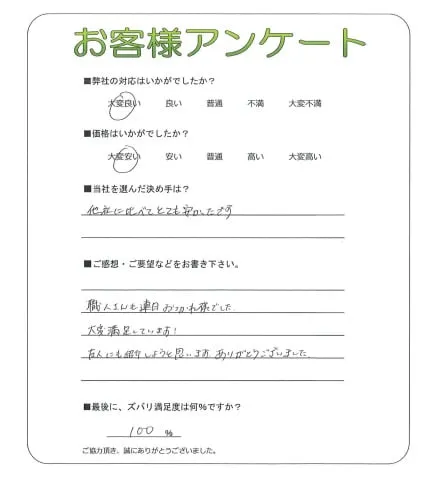 お客様アンケート
■弊社の対応はいかがでしたか？
大変良い 良い 普通 不満 大変不満
■価格はいかがでしたか？
大変安い 安い 普通 高い 大変高い
■当社を選んだ決め手は？
他社に比べてとても安かったです
■ご感想・ご要望などをお書き下さい。
職人さんも連日おつかれ様でした
大変満足しています！
友人にも紹介しようと思います ありがとうございました
■最後に、ズバリ満足度は何％ですか？
100 ％
ご協力頂き、誠にありがとうございました。